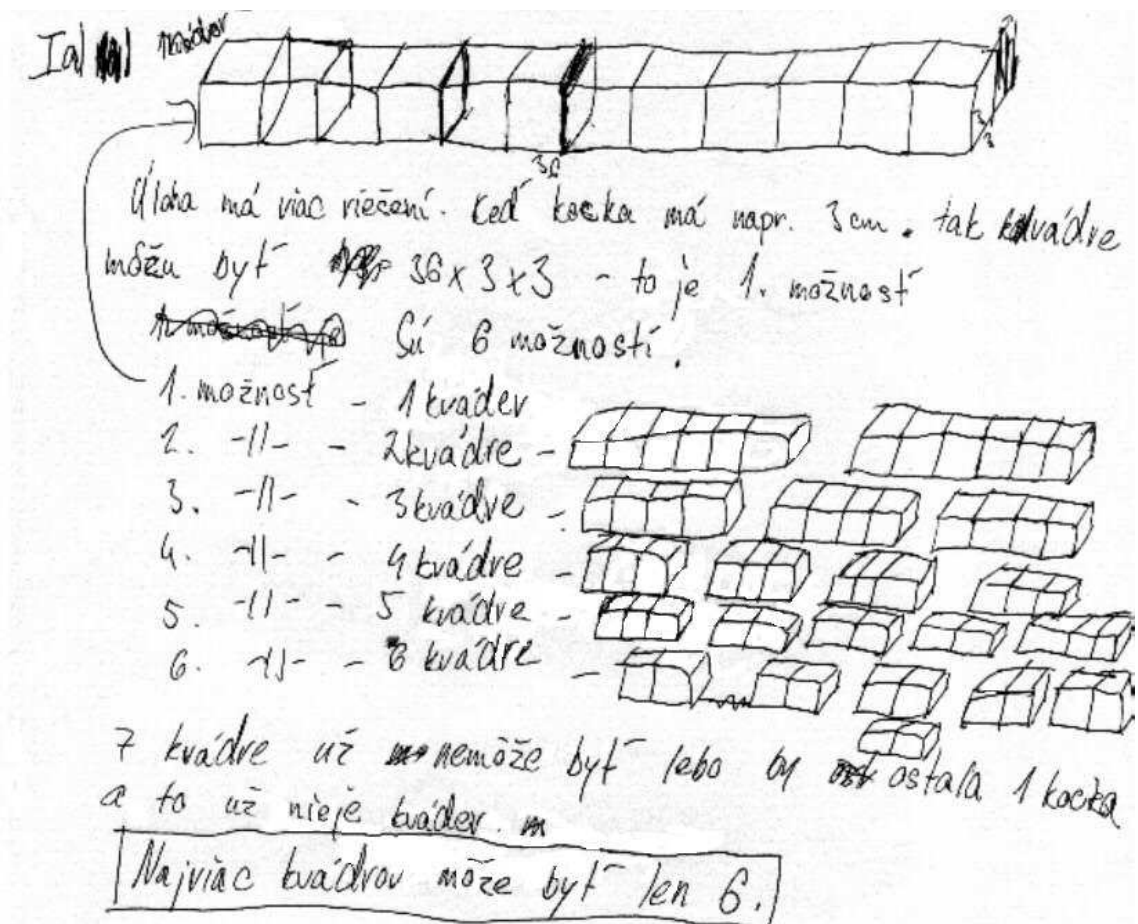 Ial
36
3
3
Úloha má viac riešení. Keď kocka má napr. 3cm. tak kvádre
môžu byť 36 x 3 x 3 - to je 1. možnosť
Sú 6 možností.
1. možnosť - 1 kváder
2. -||- - 2 kvádre -
3. -||- - 3 kvádre -
4. -||- - 4 kvádre -
5. -||- - 5 kvádre -
6. -||- - 6 kvádre -
7 kvádre už nemôže byť lebo by ostala 1 kocka
a to už nieje kváder.
Najviac kvádrov môže byť len 6.